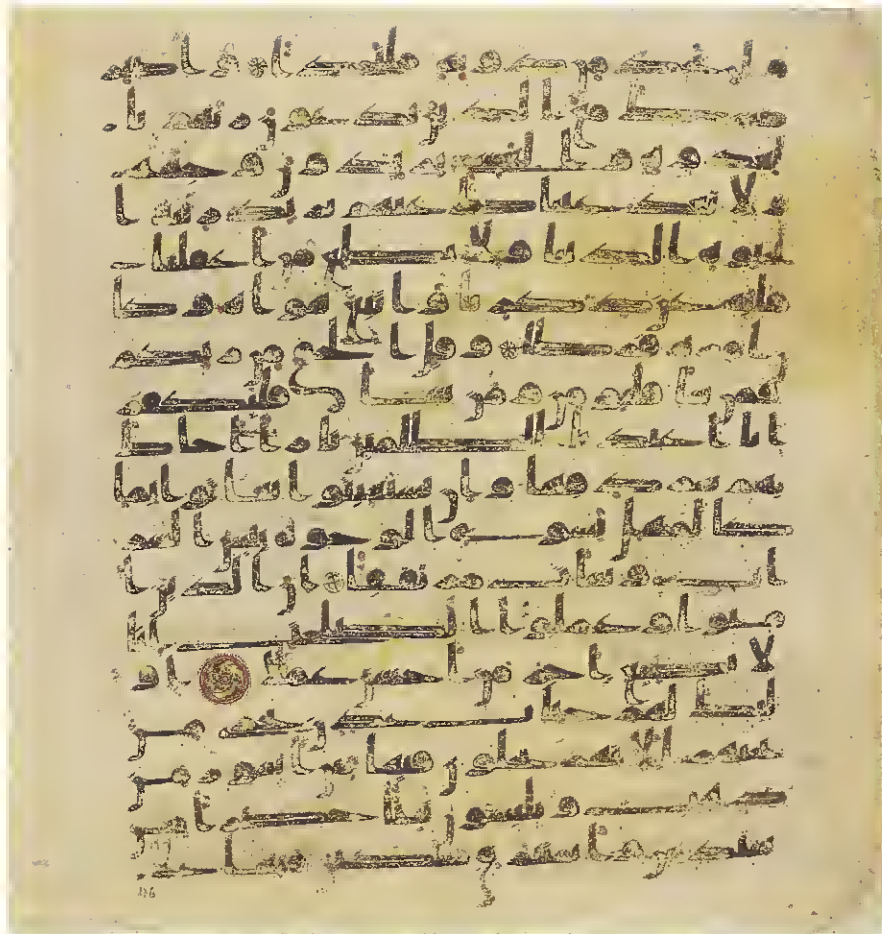 و لن تجد من دونه ملتحدا و اصبر
نفسك مع الذين يدعون ربهم با
لغدوه و العشي يريدون وجهه
ولا تعد عيناك عنهم تريد زينه ا
لحيوه الدنيا ولا تطع من اغفلنا
قلبه عن ذكرنا و اتبع هواه وكا
ن امره فرطا وقل الحق من ربكم
فمن شا فليومن ومن شا فليكفر
انا اعتدنا للظلمين نارا احاط
بهم سرادقها وان يستغيثوا يغاثوا بما
كالمهل يشوي الوجوه بئس الشر
اب وسات مرتفقا ان الذين ا
منوا وعملوا الصلحت انا
لا نضيع اجر من احسن عملا او
لئك لهم جنت عدن تجري من
تحتهم الانهر يحلون فيها من اساور من
ذهب ويلبسون ثيابا خضرا من
سندس واستبرق متكين فيها